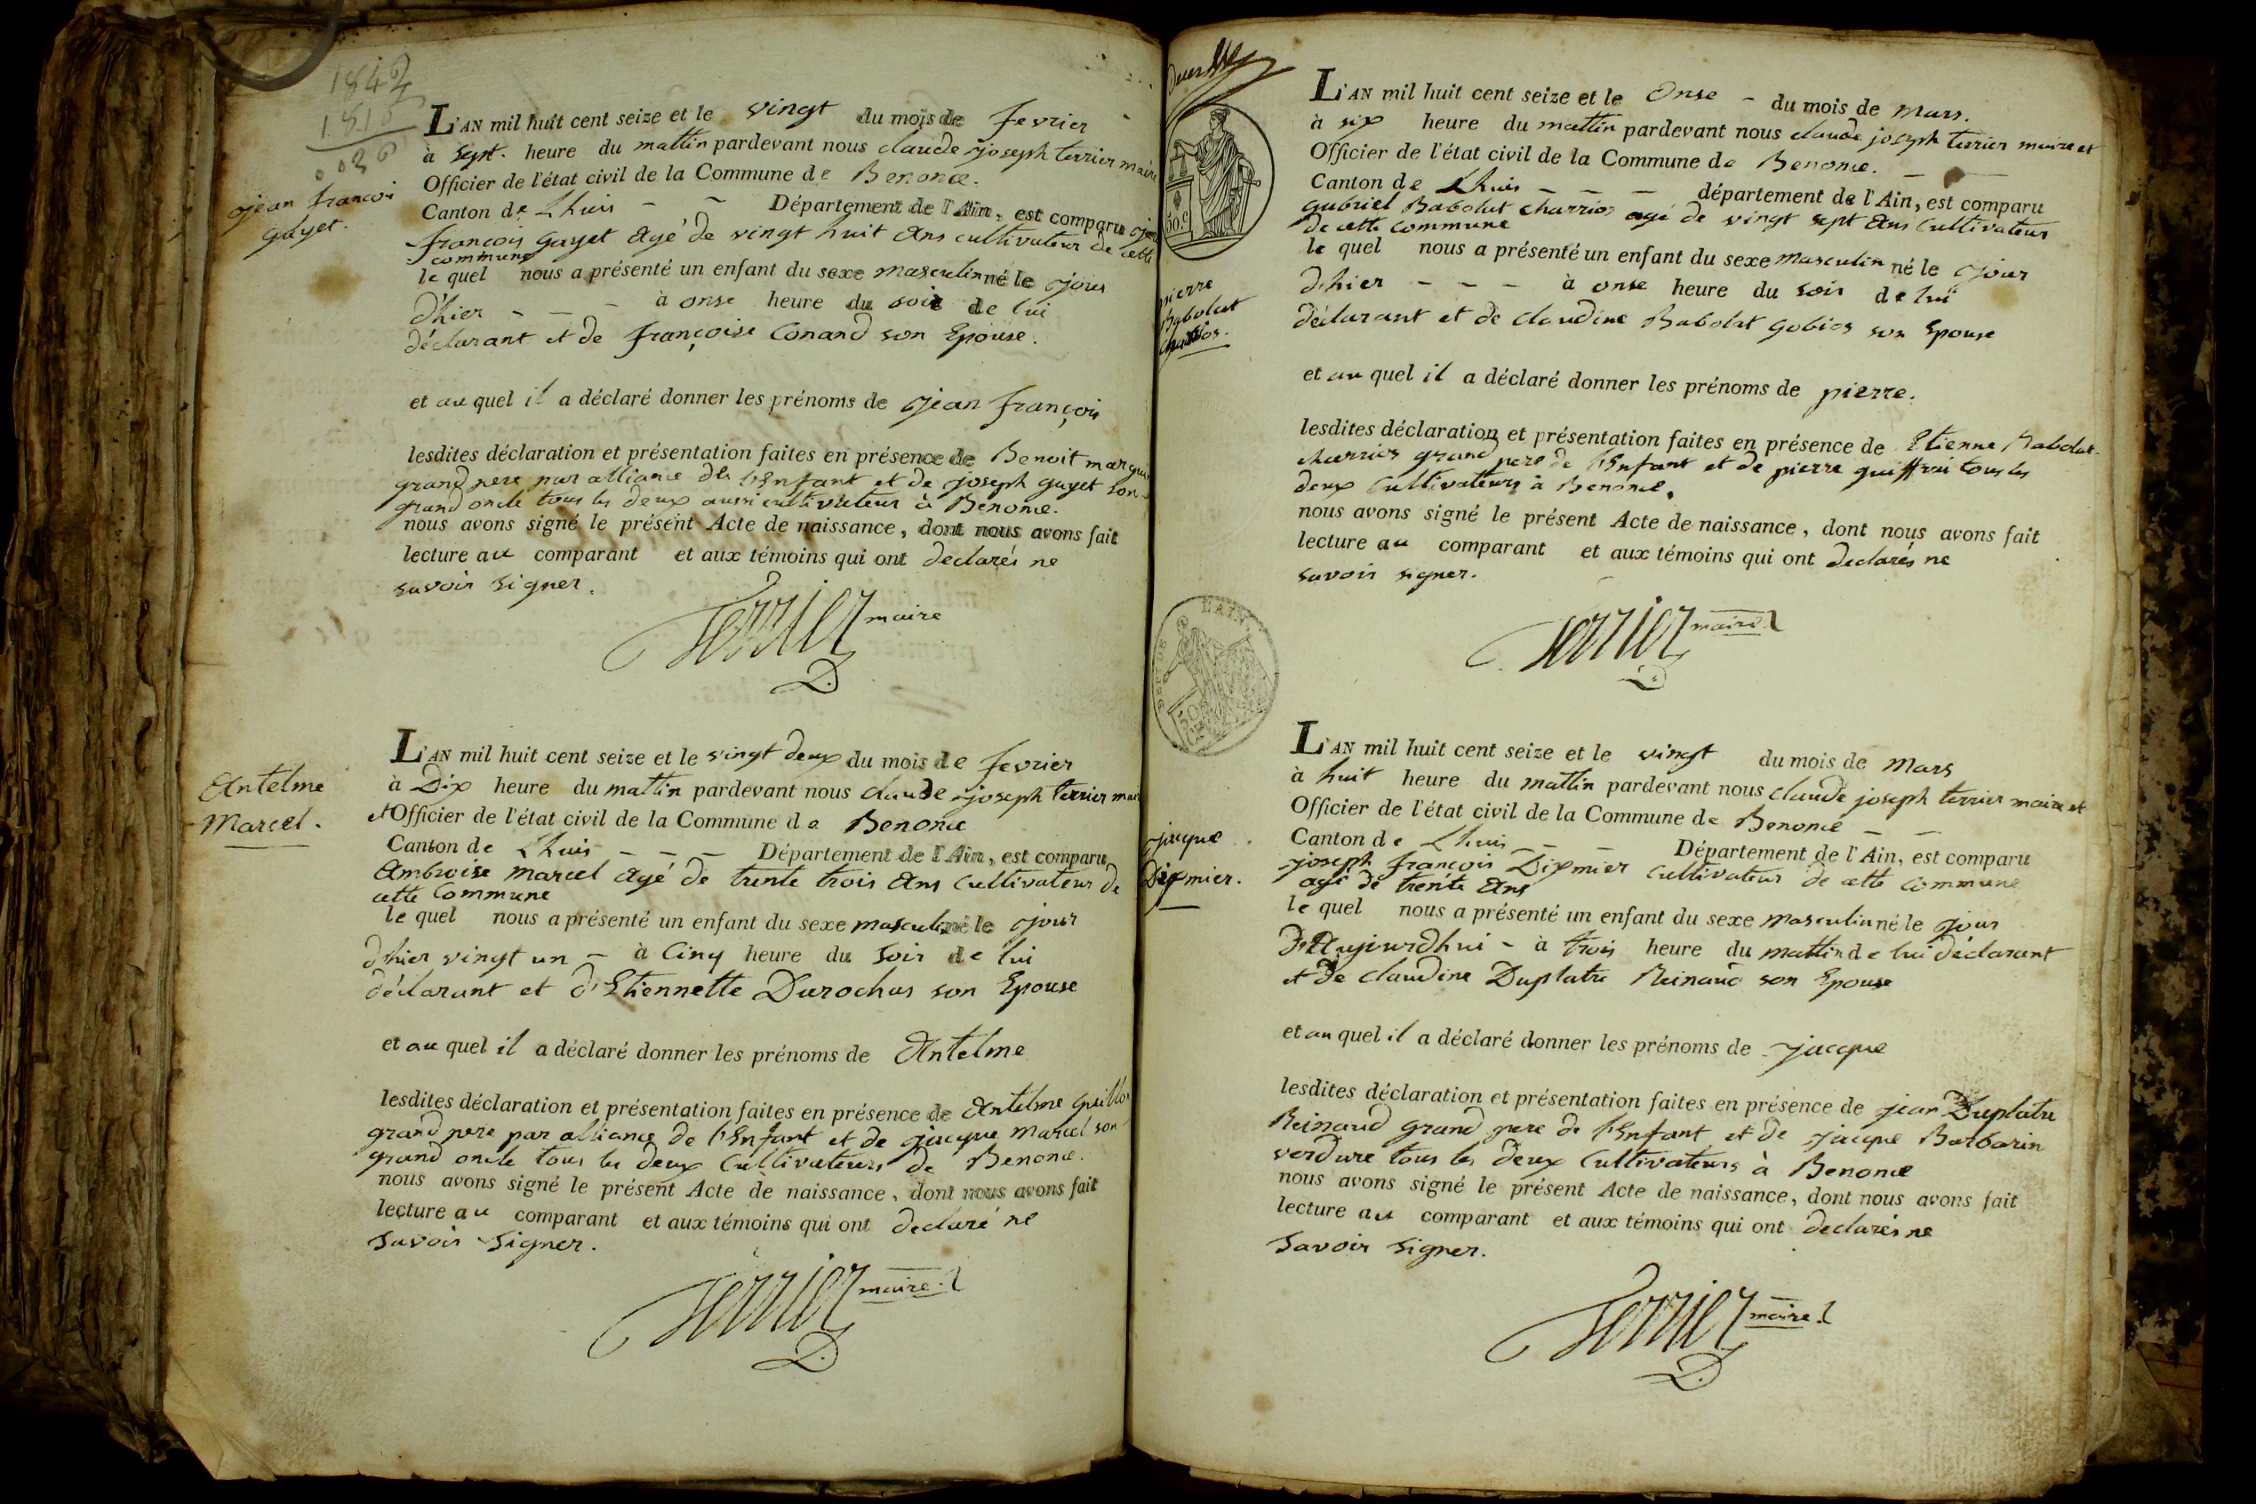 1842
1816
026
jean françois
gayet.
L'AN mil huit cent seize et le vingt du mois de fevrier
à sept. heure du mattin pardevant nous claude joseph terrier maire
Officier de l'état civil de la Commune de Benonce.
Canton de Lhuis - - Département de l'Ain, est comparu jean
françois gayet agé de vingt huit ans cultivateur de cette
commune
le quel nous a présenté un enfant du sexe masculin né le jour
d'hier - - - à onse heure du soir de lui
déclarant et de françoise Conand son Epouse.
et au quel il a déclaré donner les prénoms de jean françois
lesdites déclaration et présentation faites en présence de Benoit
grand pere par alliance de l'Enfant et de joseph gayet son
grand oncle tous les deux aussi cultivateur à Benonce.
nous avons signé le présent Acte de naissance, dont nous avons fait
lecture au comparant et aux témoins qui ont declarés ne
savoir signer.
Terrier maire
Antelme
Marcel.
L'AN mil huit cent seize et le vingt deux du mois de fevrier
à Dix heure du mattin pardevant nous claude joseph terrier
et Officier de l'état civil de la Commune de Benonce
Canton de Lhuis - - - Département de l'Ain, est comparu
Ambroise Marcel agé de trente trois ans cultivateur de
cette Commune
le quel nous a présenté un enfant du sexe masculin né le jour
dhier vingt un - à Cinq heure du soir de lui
déclarant et d'Etiennette Durochas son Epouse
et au quel il a déclaré donner les prénoms de Antelme
lesdites déclaration et présentation faites en présence de Antelme
grand pere par alliance de l'Enfant et de jacque Marcel son
grand oncle tous les deux Cultivateurs de Benonce.
nous avons signé le présent Acte de naissance, dont nous avons fait
lecture au comparant et aux témoins qui ont declaré ne
savoir signer.
Terrier maire
30.c
pierre
Babolat
charrios.
L'AN mil huit cent seize et le Onse - du mois de Mars.
à six heure du mattin pardevant nous claude joseph terrier maire et
Officier de l'état civil de la Commune de Benonce. -
Canton de Lhuis - - - département de l'Ain, est comparu
gabriel Babolat charrios agé de vingt sept ans Cultivateur
de cette commune
le quel nous a présenté un enfant du sexe masculin né le jour
dhier - - - à onse heure du soir de lui
déclarant et de claudine Babolat gobios son Epouse
et au quel il a déclaré donner les prénoms de pierre.
lesdites déclaration et présentation faites en présence de Etienne Babolat
charrios grand pere de l'Enfant et de pierre tous les
deux Cultivateurs à Benonce.
nous avons signé le présent Acte de naissance, dont nous avons fait
lecture au comparant et aux témoins qui ont declarés ne
savoir signer.
Terrier maire
AIN
jacque
Dixmier.
L'AN mil huit cent seize et le vingt du mois de Mars
à huit heure du mattin pardevant nous claude joseph terrier maire et
Officier de l'état civil de la Commune de Benonce - -
Canton de Lhuis - - - Département de l'Ain, est comparu
joseph françois Dixmier Cultivateur de cette commune
agé de trente ans
le quel nous a présenté un enfant du sexe masculin né le jour
D'Aujourdhui - à trois heure du mattin de lui déclarant
et de claudine Duplatre Reinaud son Epouse
et au quel il a déclaré donner les prénoms de jacque
lesdites déclaration et présentation faites en présence de jean Duplatre
Reinaud grand pere de l'Enfant et de jacque Barbarin
verdure tous les deux Cultivateurs à Benonce
nous avons signé le présent Acte de naissance, dont nous avons fait
lecture au comparant et aux témoins qui ont declarés ne
savoir signer.
Terrier maire